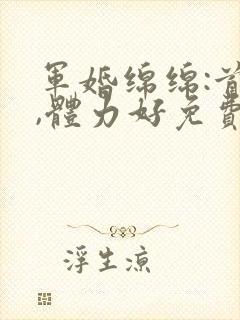 軍婚綿綿:首
,體力好免費
浮生涼